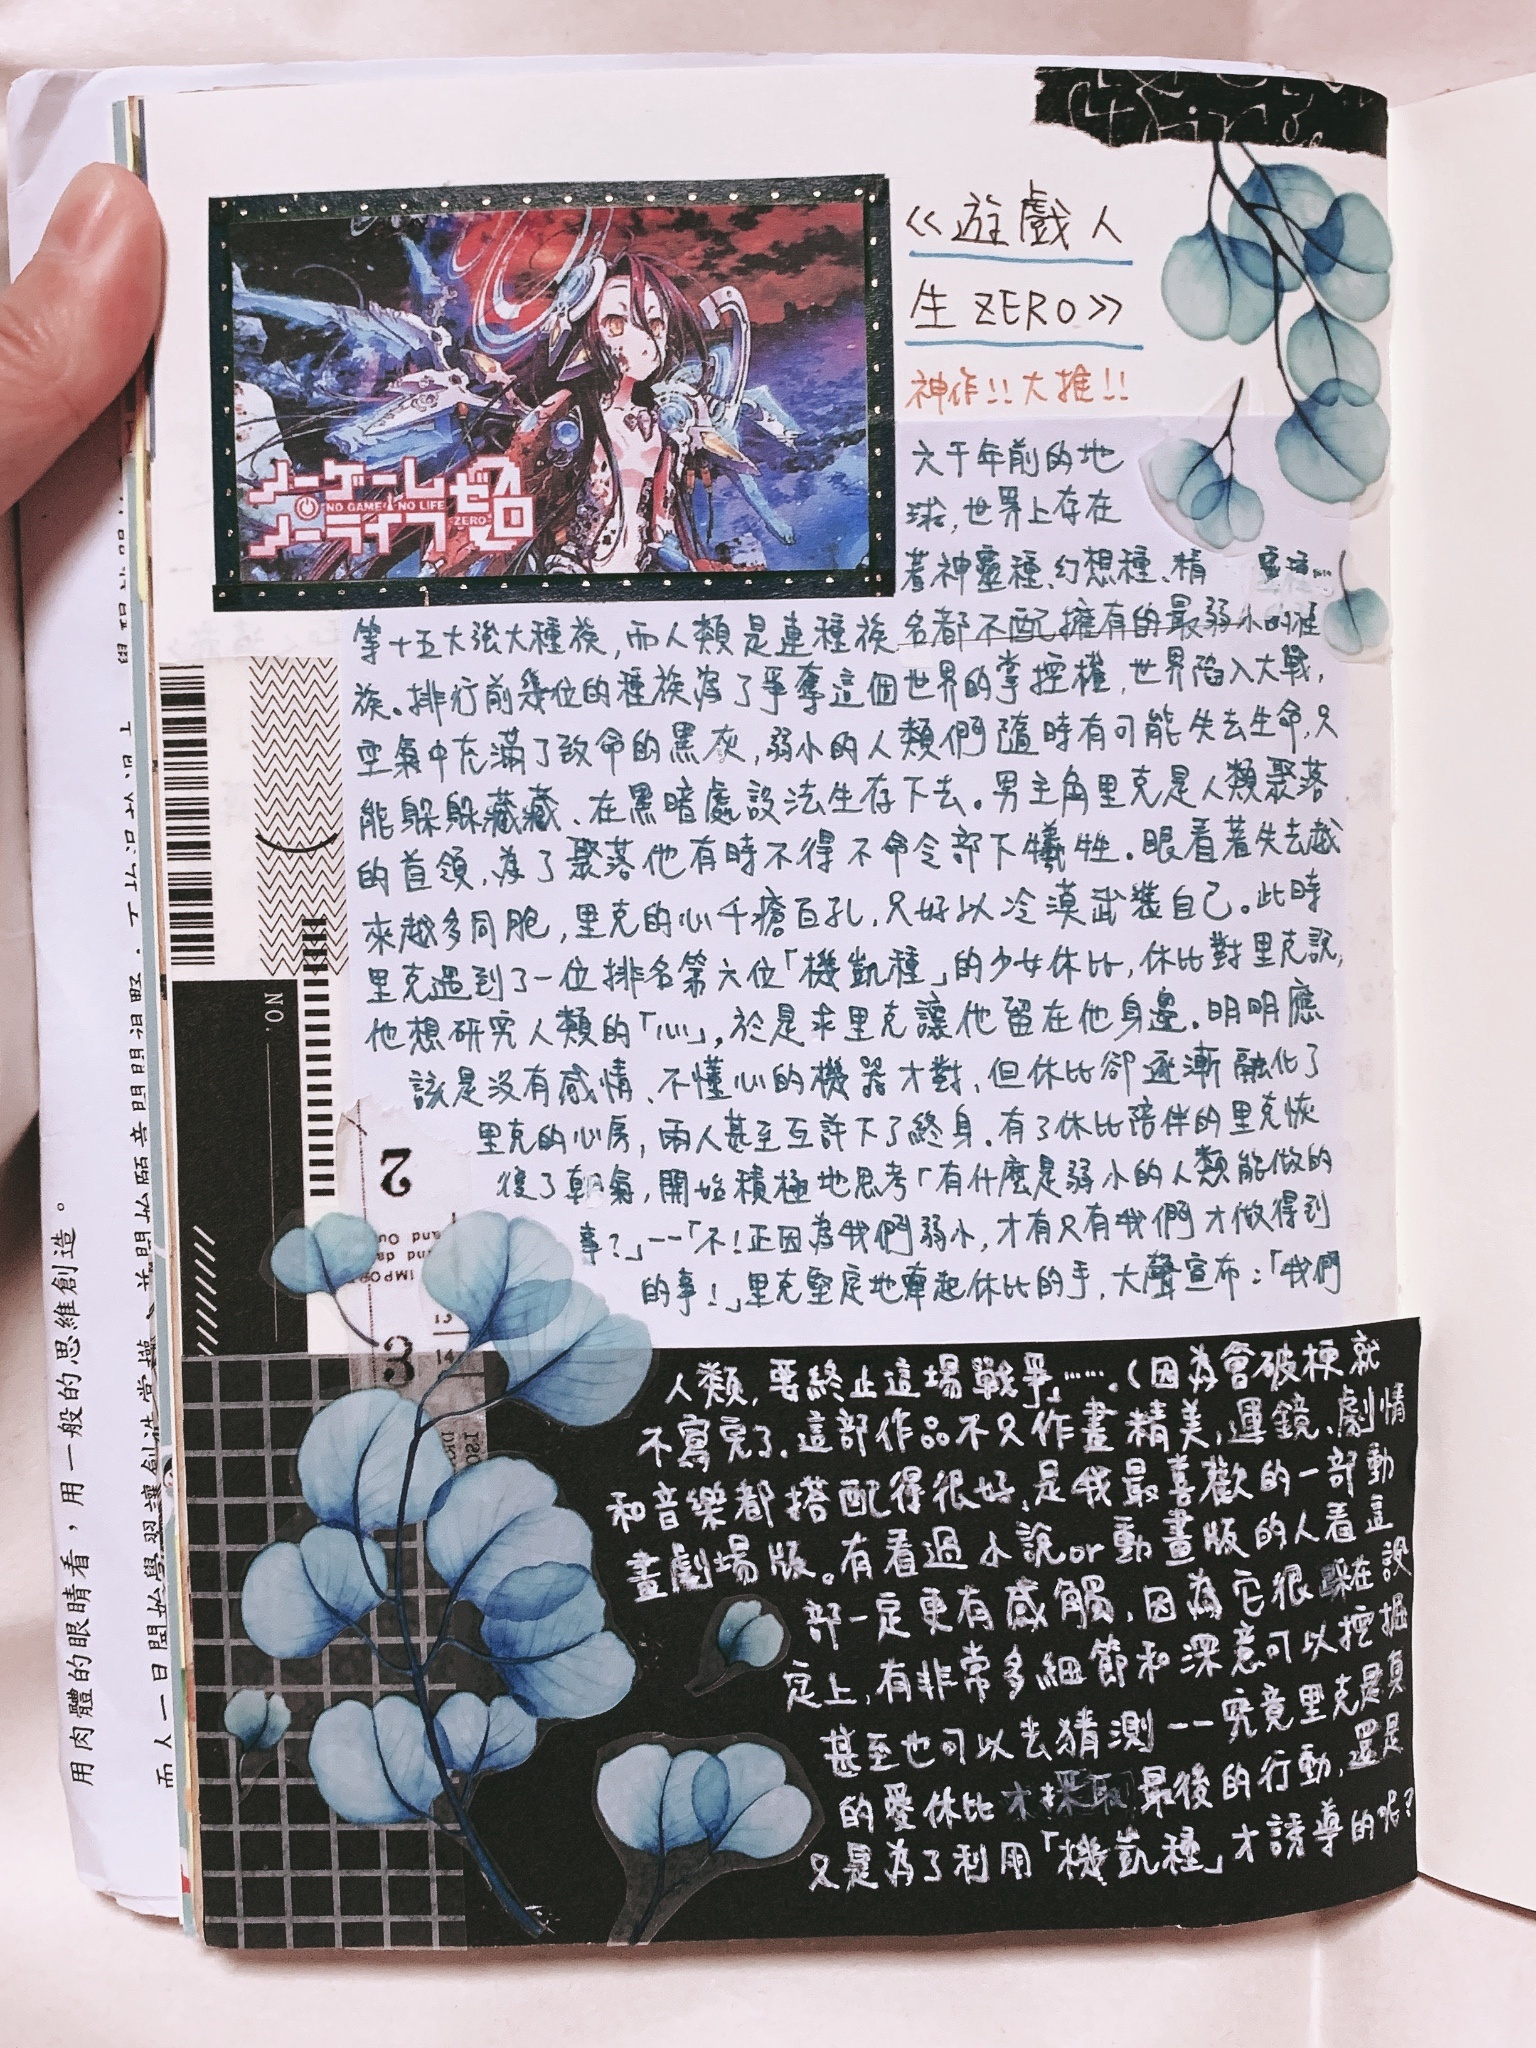 《遊戲人
生ZERO》
神作!!大推!!
ノーゲーム
ノーライフ
ゼロ
NO GAME NO LIFE
ZERO
六千年前的地
球,世界上存在
著神靈種、幻想種、精靈種……
等十五大強大種族,而人類是連種族名都不配擁有的最弱小的種
族。排行前幾位的種族為了爭奪這個世界的掌控權,世界陷入大戰,
空氣中充滿了致命的黑灰,弱小的人類們隨時有可能失去生命,只
能躲躲藏藏、在黑暗處設法生存下去。男主角里克是人類聚落
的首領,為了聚落他有時不得不命令部下犧牲。眼看著失去越
來越多同胞,里克的心千瘡百孔,只好以冷漠武裝自己。此時
里克遇到了一位排名第六位「機凱種」的少女休比,休比對里克說,
他想研究人類的「心」,於是求里克讓他留在他身邊。明明應
該是沒有感情、不懂心的機器才對,但休比卻逐漸融化了
里克的心房,兩人甚至互許下了終身。有了休比陪伴的里克恢
復了朝氣,開始積極地思考「有什麼是弱小的人類能做的
事?」--「不!正因為我們弱小,才有只有我們才做得到
的事!」里克堅定地牽起休比的手,大聲宣布:「我們
人類,要終止這場戰爭」……。(因為會破梗就
不寫完了。這部作品不只作畫精美,運鏡、劇情
和音樂都搭配得很好,是我最喜歡的一部動
畫劇場版。有看過小說or動畫版的人看這
部一定更有感觸,因為它很踩在設
定上,有非常多細節和深意可以挖掘
甚至也可以去猜測--究竟里克是真
的愛休比才採取最後的行動,還是
又是為了利用「機凱種」才誘導的呢?
NO.
2
3
13
14
用肉體的眼睛看,用一般的思維創造。